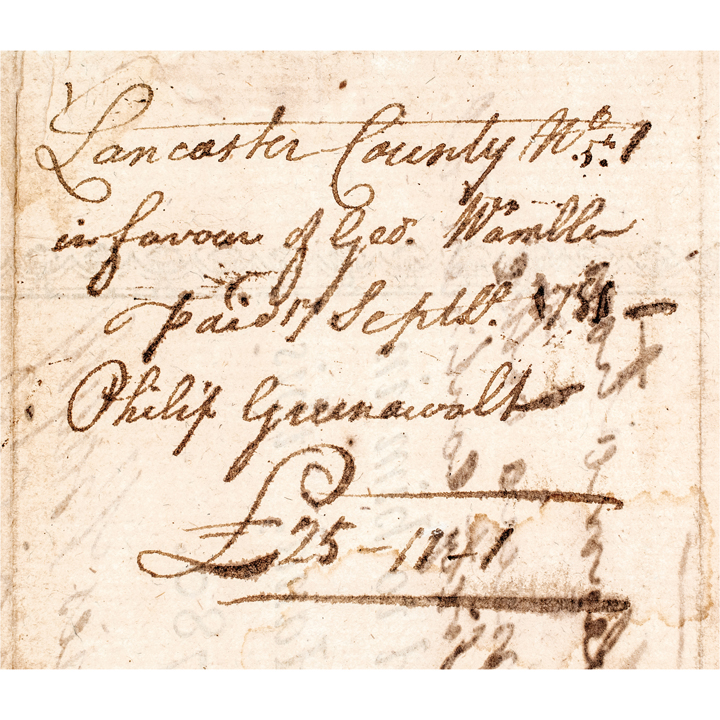 Lancaster County No. 5. 1
in favour of Geo. Wambler
paid 17 Septbr. 1781
Philip Greenawalt
£25 - 17 - 1